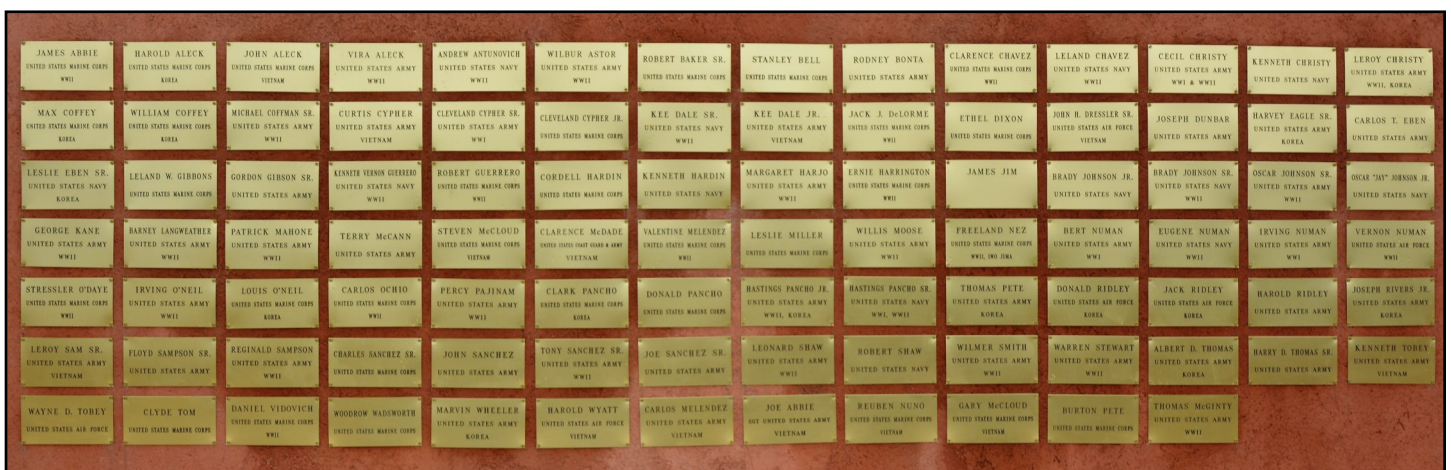 JAMES ABBIE
UNITED STATES MARINE CORPS
WWII
HAROLD ALECK
UNITED STATES MARINE CORPS
KOREA
JOHN ALECK
UNITED STATES MARINE CORPS
VIETNAM
VIRA ALECK
UNITED STATES ARMY
WWII
ANDREW ANTUNOVICH
UNITED STATES NAVY
WWII
WILBUR ASTOR
UNITED STATES ARMY
WWII
ROBERT BAKER SR.
UNITED STATES MARINE CORPS
STANLEY BELL
UNITED STATES MARINE CORPS
RODNEY BONTA
UNITED STATES ARMY
CLARENCE CHAVEZ
UNITED STATES MARINE CORPS
WWII
LELAND CHAVEZ
UNITED STATES NAVY
WWII
CECIL CHRISTY
UNITED STATES ARMY
WW1 & WWII
KENNETH CHRISTY
UNITED STATES NAVY
LEROY CHRISTY
UNITED STATES ARMY
WWII, KOREA
MAX COFFEY
UNITED STATES MARINE CORPS
KOREA
WILLIAM COFFEY
UNITED STATES MARINE CORPS
KOREA
MICHAEL COFFMAN SR.
UNITED STATES ARMY
WWII
CURTIS CYPHER
UNITED STATES ARMY
VIETNAM
CLEVELAND CYPHER SR.
UNITED STATES ARMY
WW1
CLEVELAND CYPHER JR.
UNITED STATES MARINE CORPS
KEE DALE SR.
UNITED STATES NAVY
WWII
KEE DALE JR.
UNITED STATES ARMY
VIETNAM
JACK J. DeLORME
UNITED STATES MARINE CORPS
WWII
ETHEL DIXON
UNITED STATES MARINE CORPS
JOHN H. DRESSLER SR.
UNITED STATES AIR FORCE
VIETNAM
JOSEPH DUNBAR
UNITED STATES ARMY
HARVEY EAGLE SR.
UNITED STATES ARMY
KOREA
CARLOS T. EBEN
UNITED STATES ARMY
LESLIE EBEN SR.
UNITED STATES NAVY
KOREA
LELAND W. GIBBONS
UNITED STATES MARINE CORPS
GORDON GIBSON SR.
UNITED STATES ARMY
KENNETH VERNON GUERRERO
UNITED STATES NAVY
WWII
ROBERT GUERRERO
UNITED STATES MARINE CORPS
WWII
CORDELL HARDIN
UNITED STATES MARINE CORPS
KENNETH HARDIN
UNITED STATES NAVY
MARGARET HARJO
UNITED STATES ARMY
WWII
ERNIE HARRINGTON
UNITED STATES MARINE CORPS
WWII
JAMES JIM
BRADY JOHNSON JR.
UNITED STATES NAVY
BRADY JOHNSON SR.
UNITED STATES NAVY
WWII
OSCAR JOHNSON SR.
UNITED STATES ARMY
WWII
OSCAR "JAY" JOHNSON JR.
UNITED STATES NAVY
GEORGE KANE
UNITED STATES ARMY
WWII
BARNEY LANGWEATHER
UNITED STATES ARMY
WWII
PATRICK MAHONE
UNITED STATES ARMY
WWII
TERRY McCANN
UNITED STATES ARMY
STEVEN McCLOUD
UNITED STATES MARINE CORPS
VIETNAM
CLARENCE McDADE
UNITED STATES COAST GUARD & ARMY
VIETNAM
VALENTINE MELENDEZ
UNITED STATES MARINE CORPS
WWII
LESLIE MILLER
UNITED STATES MARINE CORPS
WILLIS MOOSE
UNITED STATES ARMY
WWII
FREELAND NEZ
UNITED STATES MARINE CORPS
WWII, IWO JIMA
BERT NUMAN
UNITED STATES ARMY
WW1
EUGENE NUMAN
UNITED STATES NAVY
WWII
IRVING NUMAN
UNITED STATES ARMY
WW1
VERNON NUMAN
UNITED STATES AIR FORCE
WWII
STRESSLER O'DAYE
UNITED STATES MARINE CORPS
WWII
IRVING O'NEIL
UNITED STATES ARMY
WWII
LOUIS O'NEIL
UNITED STATES MARINE CORPS
KOREA
CARLOS OCHIO
UNITED STATES MARINE CORPS
WWII
PERCY PAJINAM
UNITED STATES ARMY
WWII
CLARK PANCHO
UNITED STATES MARINE CORPS
KOREA
DONALD PANCHO
UNITED STATES MARINE CORPS
HASTINGS PANCHO JR.
UNITED STATES ARMY
WWII, KOREA
HASTINGS PANCHO SR.
UNITED STATES NAVY
WW1, WWII
THOMAS PETE
UNITED STATES ARMY
KOREA
DONALD RIDLEY
UNITED STATES AIR FORCE
KOREA
JACK RIDLEY
UNITED STATES AIR FORCE
KOREA
HAROLD RIDLEY
UNITED STATES ARMY
JOSEPH RIVERS JR.
UNITED STATES ARMY
KOREA
LEROY SAM SR.
UNITED STATES ARMY
VIETNAM
FLOYD SAMPSON SR.
UNITED STATES ARMY
REGINALD SAMPSON
UNITED STATES ARMY
WWII
CHARLES SANCHEZ SR.
UNITED STATES MARINE CORPS
JOHN SANCHEZ
UNITED STATES ARMY
TONY SANCHEZ SR.
UNITED STATES ARMY
WWII
JOE SANCHEZ SR.
UNITED STATES ARMY
LEONARD SHAW
UNITED STATES ARMY
WWII
ROBERT SHAW
UNITED STATES NAVY
WILMER SMITH
UNITED STATES ARMY
WWII
WARREN STEWART
UNITED STATES ARMY
WWII
ALBERT D. THOMAS
UNITED STATES ARMY
KOREA
HARRY D. THOMAS SR.
UNITED STATES ARMY
KENNETH TOBEY
UNITED STATES ARMY
VIETNAM
WAYNE D. TOBEY
UNITED STATES AIR FORCE
CLYDE TOM
UNITED STATES MARINE CORPS
DANIEL VIDOVICH
UNITED STATES MARINE CORPS
WWII
WOODROW WADSWORTH
UNITED STATES MARINE CORPS
MARVIN WHEELER
UNITED STATES ARMY
KOREA
HAROLD WYATT
UNITED STATES AIR FORCE
VIETNAM
CARLOS MELENDEZ
UNITED STATES ARMY
VIETNAM
JOE ABBIE
SGT UNITED STATES ARMY
VIETNAM
REUBEN NUNO
UNITED STATES MARINE CORPS
VIETNAM
GARY McCLOUD
UNITED STATES MARINE CORPS
VIETNAM
BURTON PETE
UNITED STATES MARINE CORPS
THOMAS McGINTY
UNITED STATES ARMY
WWII